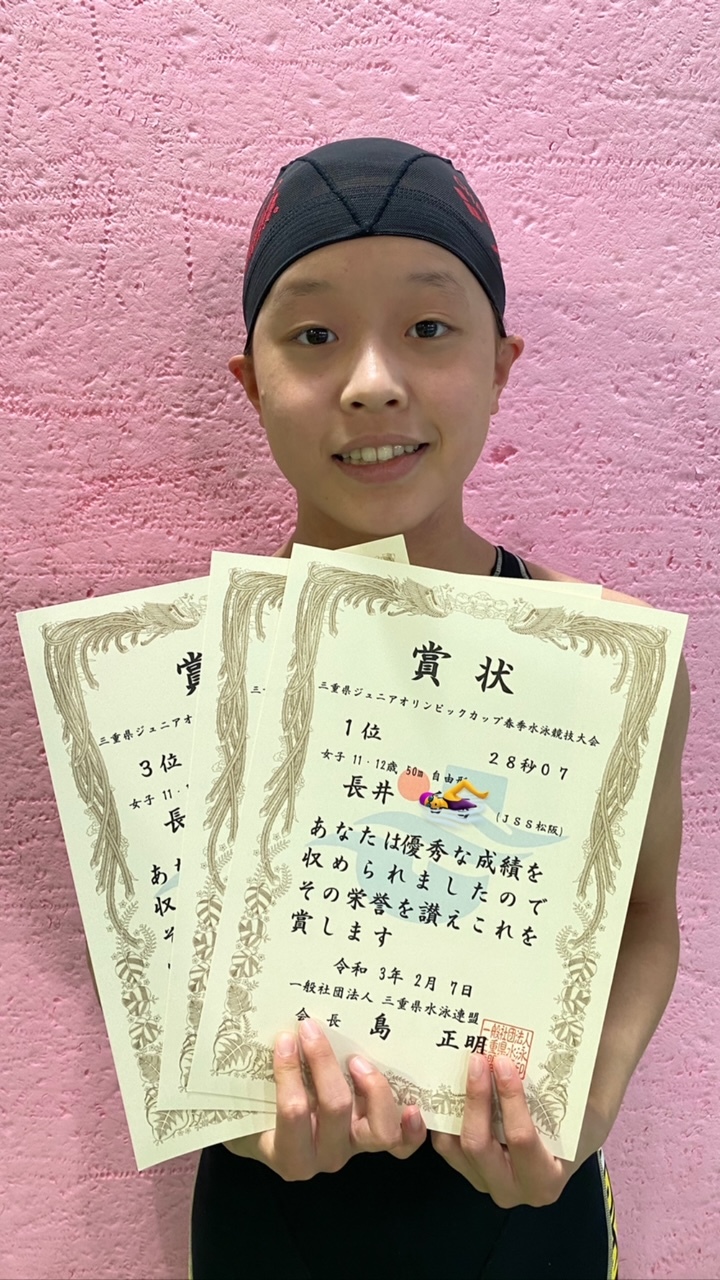 賞状
三重県ジュニアオリンピックカップ春季水泳競技大会
1位
28秒07
女子 11・12歳 50m 自由形
長井
(JSS松阪)
あなたは優秀な成績を
収められましたので
その栄誉を讃えこれを
賞します
令和 3年 2月 7日
一般社団法人 三重県水泳連盟
会長 島 正明
賞
三重県ジュニアオ
3位
女子 11・
長
あ
収
そ
三